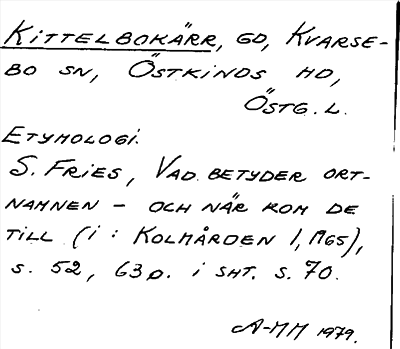 KITTELBOKÄRR, GD, KVARSE-
BO SN, ÖSTKINDS HD,
ÖSTG. L.
ETYMOLOGI.
S. FRIES, VAD BETYDER ORT-
NAMNEN - OCH NÄR KOM DE
TILL (I: KOLMÅRDEN 1, 1965),
S. 52, 63 o. I SHT. S. 70.
A-MM 1979.